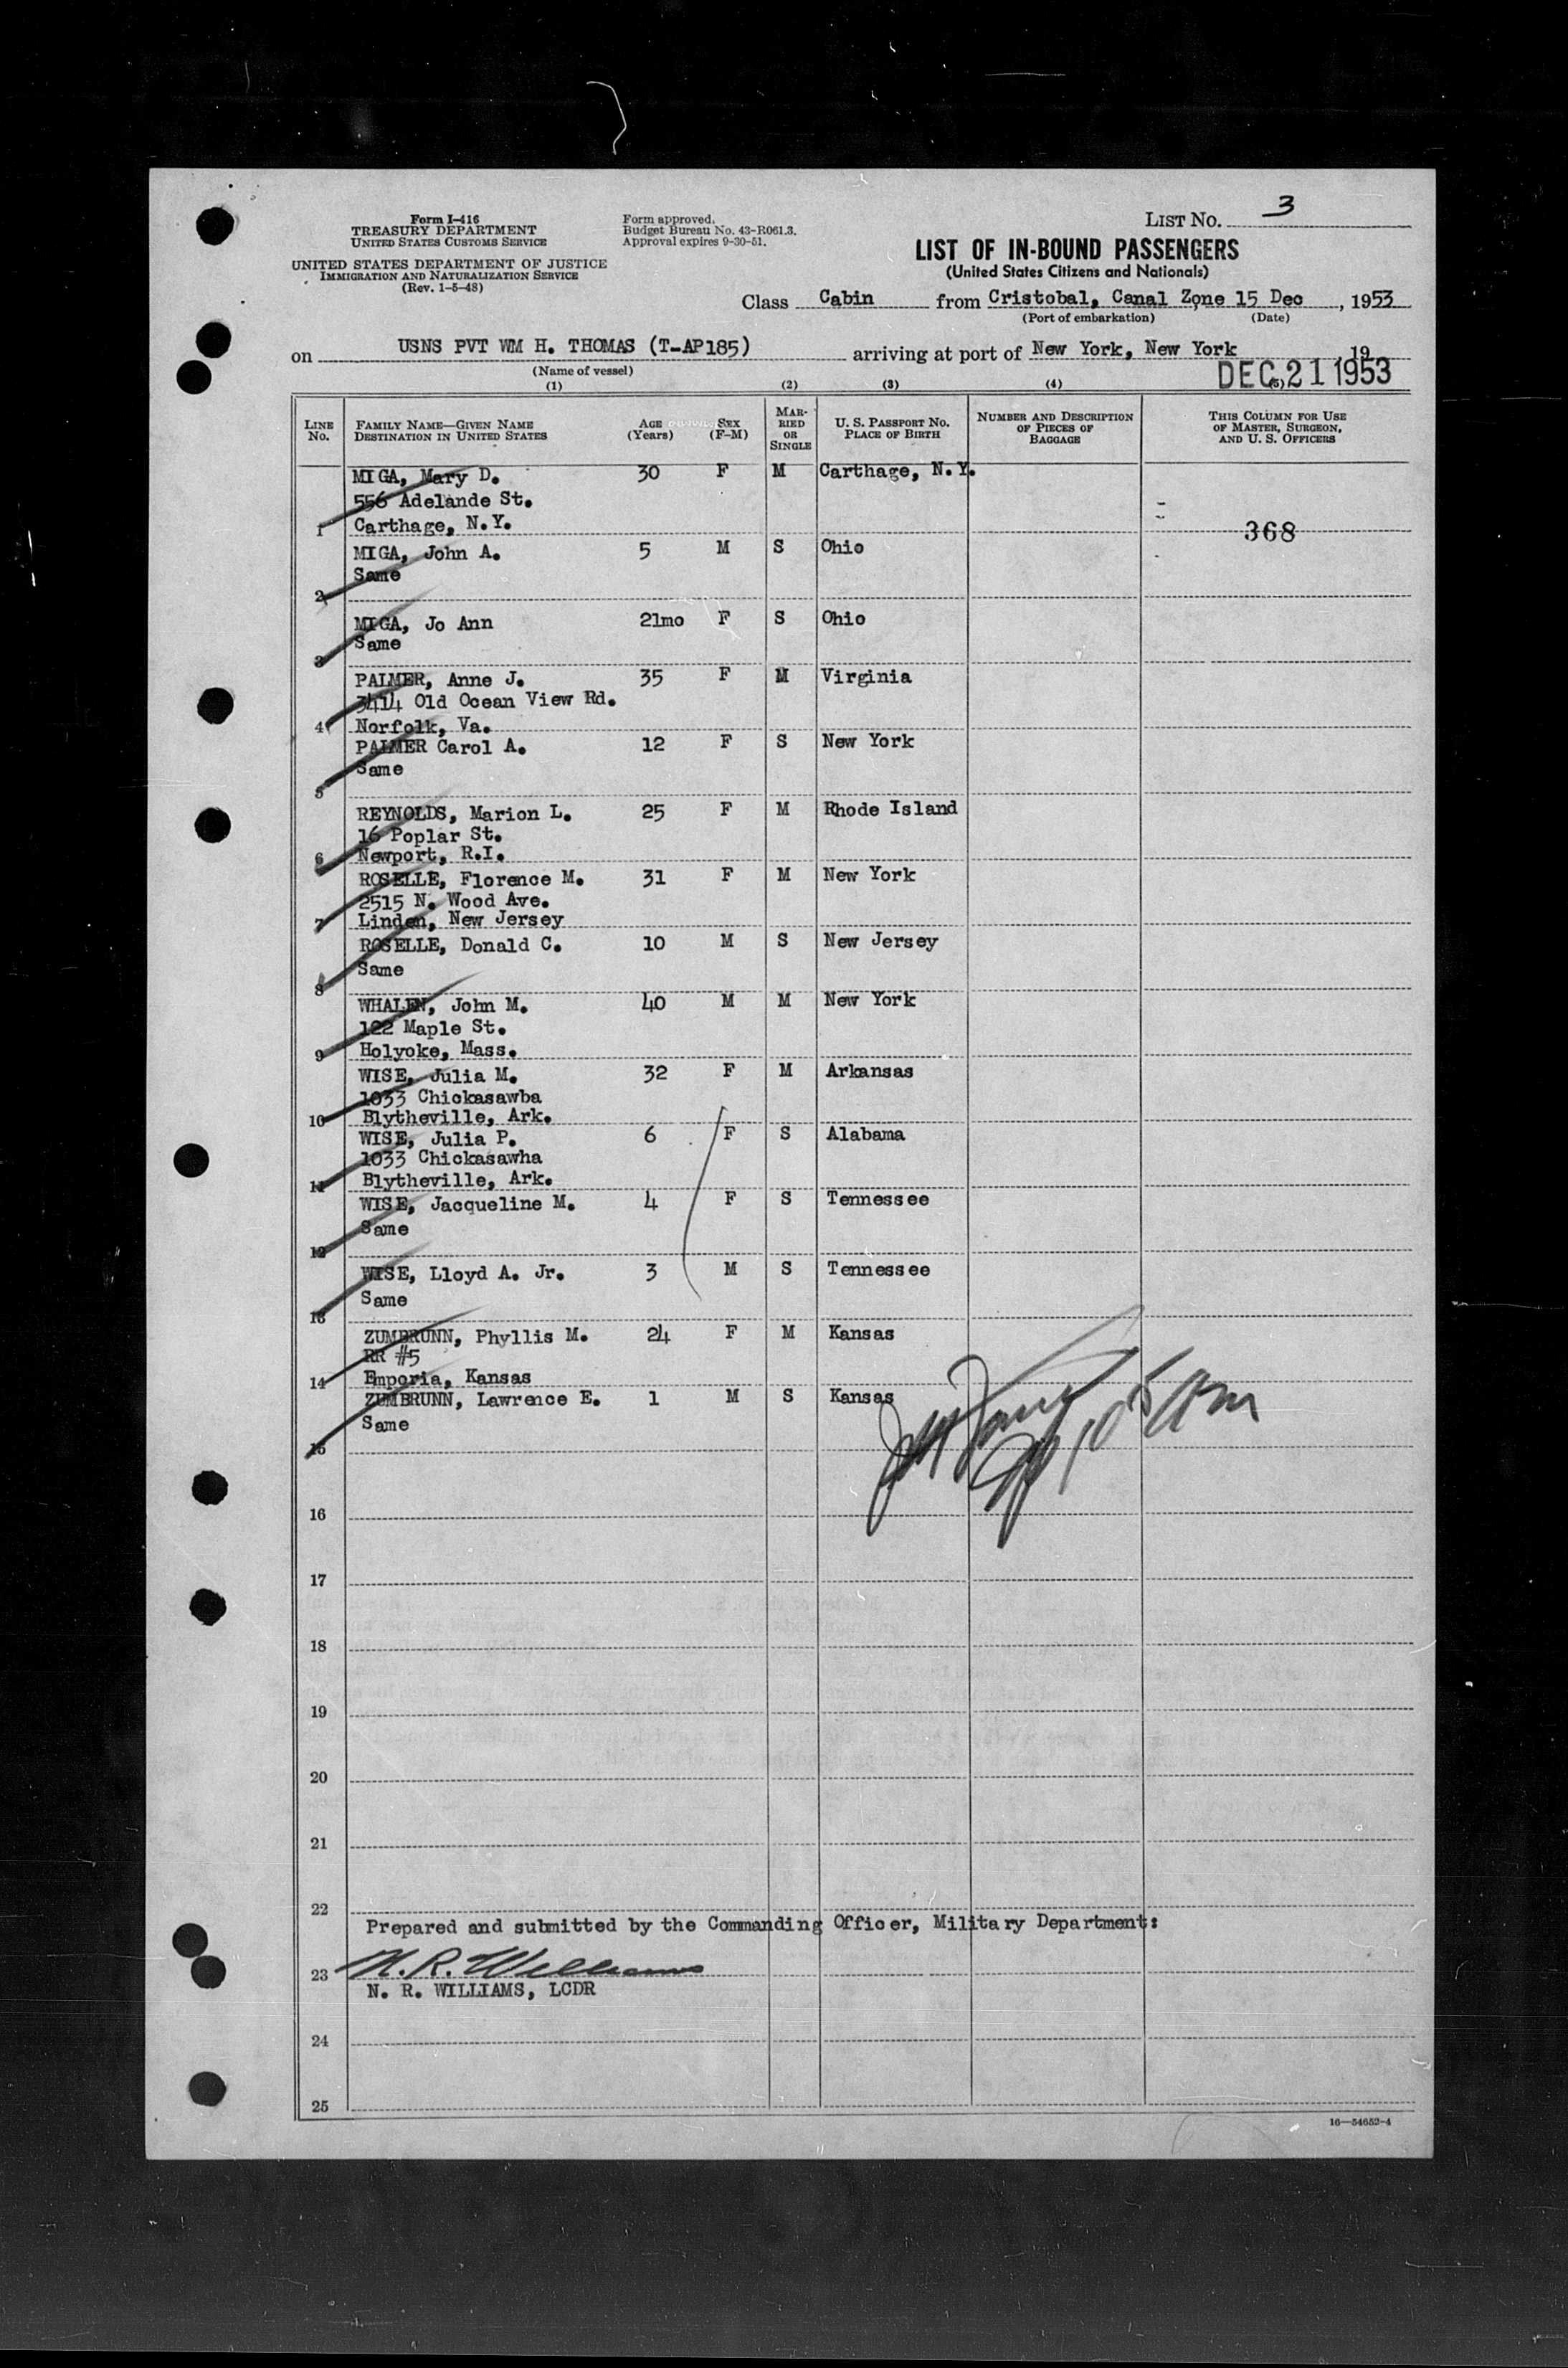 Form I-416
TREASURY DEPARTMENT
UNITED STATES CUSTOMS SERVICE
UNITED STATES DEPARTMENT OF JUSTICE
IMMIGRATION AND NATURALIZATION SERVICE
(Rev. 1-5-48)
Form approved.
Budget Bureau No. 43-R061.3.
Approval expires 9-30-51.
LIST No. 3
LIST OF IN-BOUND PASSENGERS
(United States Citizens and Nationals)
Class Cabin from Cristobal, Canal Zone 15 Dec, 1953
(Port of embarkation) (Date)
on USNS PVT WM H. THOMAS (T-AP185) arriving at port of New York, New York, 19
(Name of vessel) DEC 21 1953
(1) (2) (3) (4) (5)
LINE No. FAMILY NAME—GIVEN NAME DESTINATION IN UNITED STATES AGE (Years) SEX (F-M) MARRIED OR SINGLE U. S. PASSPORT NO. PLACE OF BIRTH NUMBER AND DESCRIPTION OF PIECES OF BAGGAGE THIS COLUMN FOR USE OF MASTER, SURGEON, AND U. S. OFFICERS
MIGA, Mary D. 30 F M Carthage, N.Y.
556 Adelande St.
1 Carthage, N.Y. 368
MIGA, John A. 5 M S Ohio
Same
2
MIGA, Jo Ann 21mo F S Ohio
Same
3
PALMER, Anne J. 35 F M Virginia
3414 Old Ocean View Rd.
4 Norfolk, Va.
PALMER Carol A. 12 F S New York
Same
5
REYNOLDS, Marion L. 25 F M Rhode Island
16 Poplar St.
6 Newport, R.I.
ROSELLE, Florence M. 31 F M New York
2515 N. Wood Ave.
7 Linden, New Jersey
ROSELLE, Donald C. 10 M S New Jersey
Same
8
WHALEN, John M. 40 M M New York
122 Maple St.
9 Holyoke, Mass.
WISE, Julia M. 32 F M Arkansas
1033 Chickasawba
10 Blytheville, Ark.
WISE, Julia P. 6 F S Alabama
1033 Chickasawha
11 Blytheville, Ark.
WISE, Jacqueline M. 4 F S Tennessee
Same
12
WISE, Lloyd A. Jr. 3 M S Tennessee
Same
13
ZUMBRUNN, Phyllis M. 24 F M Kansas
RR #5
14 Emporia, Kansas
ZUMBRUNN, Lawrence E. 1 M S Kansas
Same
15
16
17
18
19
20
21
22
Prepared and submitted by the Commanding Officer, Military Department:
23 N. R. Williams
N. R. WILLIAMS, LCDR
24
25
16—54652-4